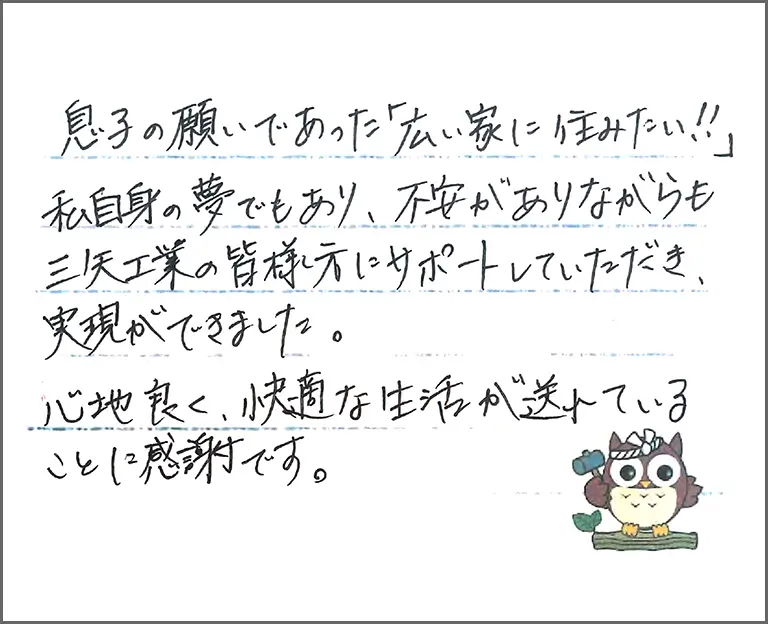 息子の願いであった「広い家に住みたい!!」
私自身の夢でもあり、不安がありながらも
三矢工業の皆様方にサポートしていただき、
実現ができました。
心地良く、快適な生活が送れている
ことに感謝です。